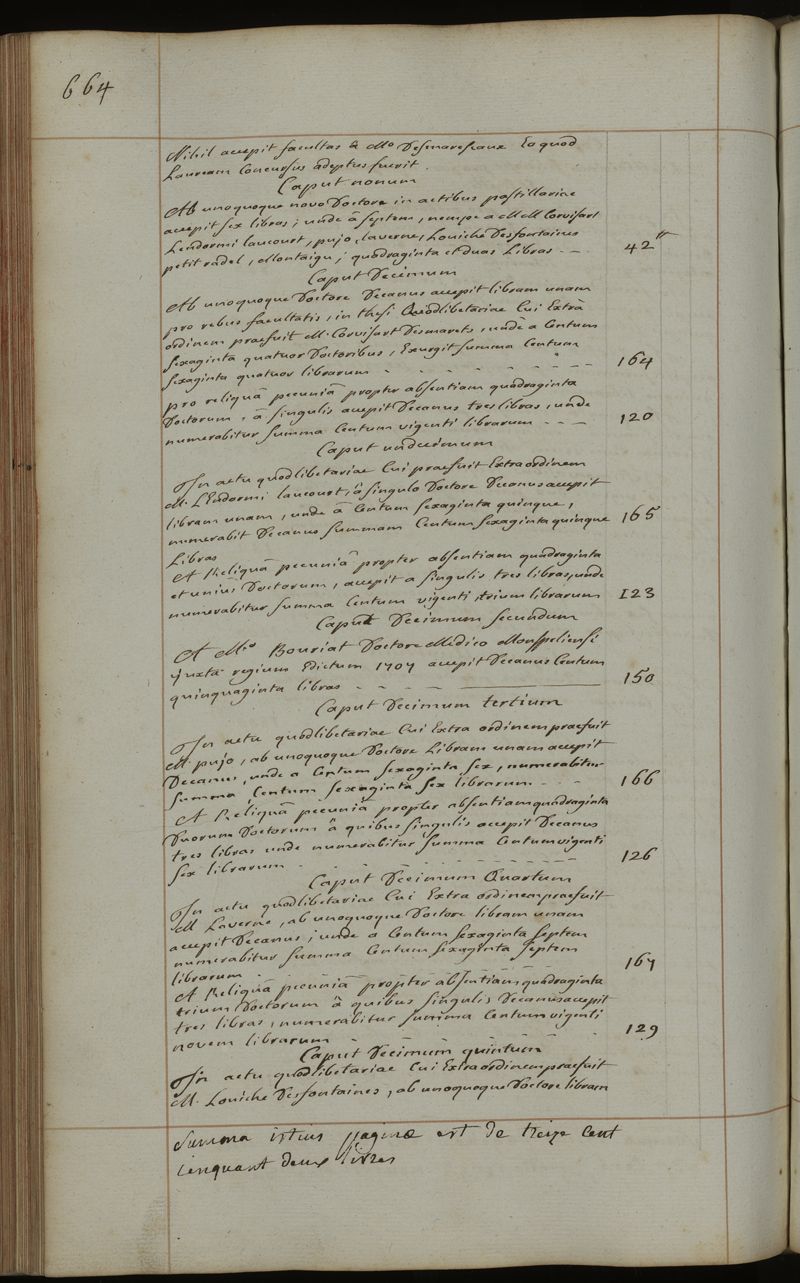 664
Nihil accepit facultas a Mo Desmaresceaux Eo quod
Lauream Concursus adeptus fuerit.
Caput nonum
Ab unoquoque novo Doctore in actibus pastillariae
accepit sex libras; unde â septem, nempe a MM Corvisart
Lendormi laucourt, pujo, laverne, Louiche Desfontaines
petit radel, Montaigu; quadraginta et duas Libras - - 42 tt
Caput Decimum
Ab unoquoque Doctore Decanus accepit libram unam
pro rebus facultatis, in thesi Quodlibetariae Cui Extrà
ordinem praefuit M. Corvisart Desmarets, undè a Centum
sexaginta quatuor Doctoribus, Exurgit summa Centum
sexaginta quatuor librarum - - - - - - 164
pro reliquâ pecuniâ propter absentiam quadraginta
Doctorum, â singulis accepit Decanus tres libras, unde
numerabitur summa Centum vigenti librarum - - - 120
Caput undecimum
In actu quodlibetariae Cui praefuit Extra ordinem
M. LEndormi laucourt, â singulo Doctore Decanus accepit
libram unam, unde â Centum sexaginta quinque,
numerabit Decanus summam Centum sexaginta quinque 165
Libras
A Reliquâ pecuniâ propter absentiam quadraginta
et unius Doctorum, accepit a singulis tres libras, unde
numerabitur summa Centum vigenti trium librarum 123
Caput Decimum secundum
A Mro Bouriat Doctore Medico Monspeliensi
juxta regium Edictum 1707 accepit Decanus Centum
quinquaginta libras - - - - 150
Caput Decimum tertium
In actu quodlibetariae Cui Extra ordinem praefuit
M pujo, ab unoquoque Doctore Libram unam accepit
Decanus, unde a Centum sexaginta sex, numerabitur
summa Centum sexaginta sex librarum - - 166
A Reliquâ pecuniâ propter absentiam quadraginta
Duorum Doctorum â quibus singulis accepit Decanus
tres libras unde numerabitur summa Centum vigenti
sex librarum - - - - - - - - 126
Caput Decimum Quartum
In actu quodlibetariae Cui Extra ordinem praefuit
M Laverne, ab unoquoque Doctore libram unam
accepit Decanus; unde a Centum sexaginta septem
numerabitur summa Centum sexaginta septem
librarum - - - - - - 167
A Reliquâ pecuniâ propter absentiam quadraginta
trium Doctorum â quibus singulis Decanus accepit
tres libras, numerabitur summa Centum vigenti
novem librarum - - - - - 129
Caput Decimum quintum
In actu quodlibetariae Cui Extra ordinem praefuit
M. Louiche Desfontaines, ab unoquoque Doctore libram
Summa istius paginæ est de treize Cent
cinquant deux livres